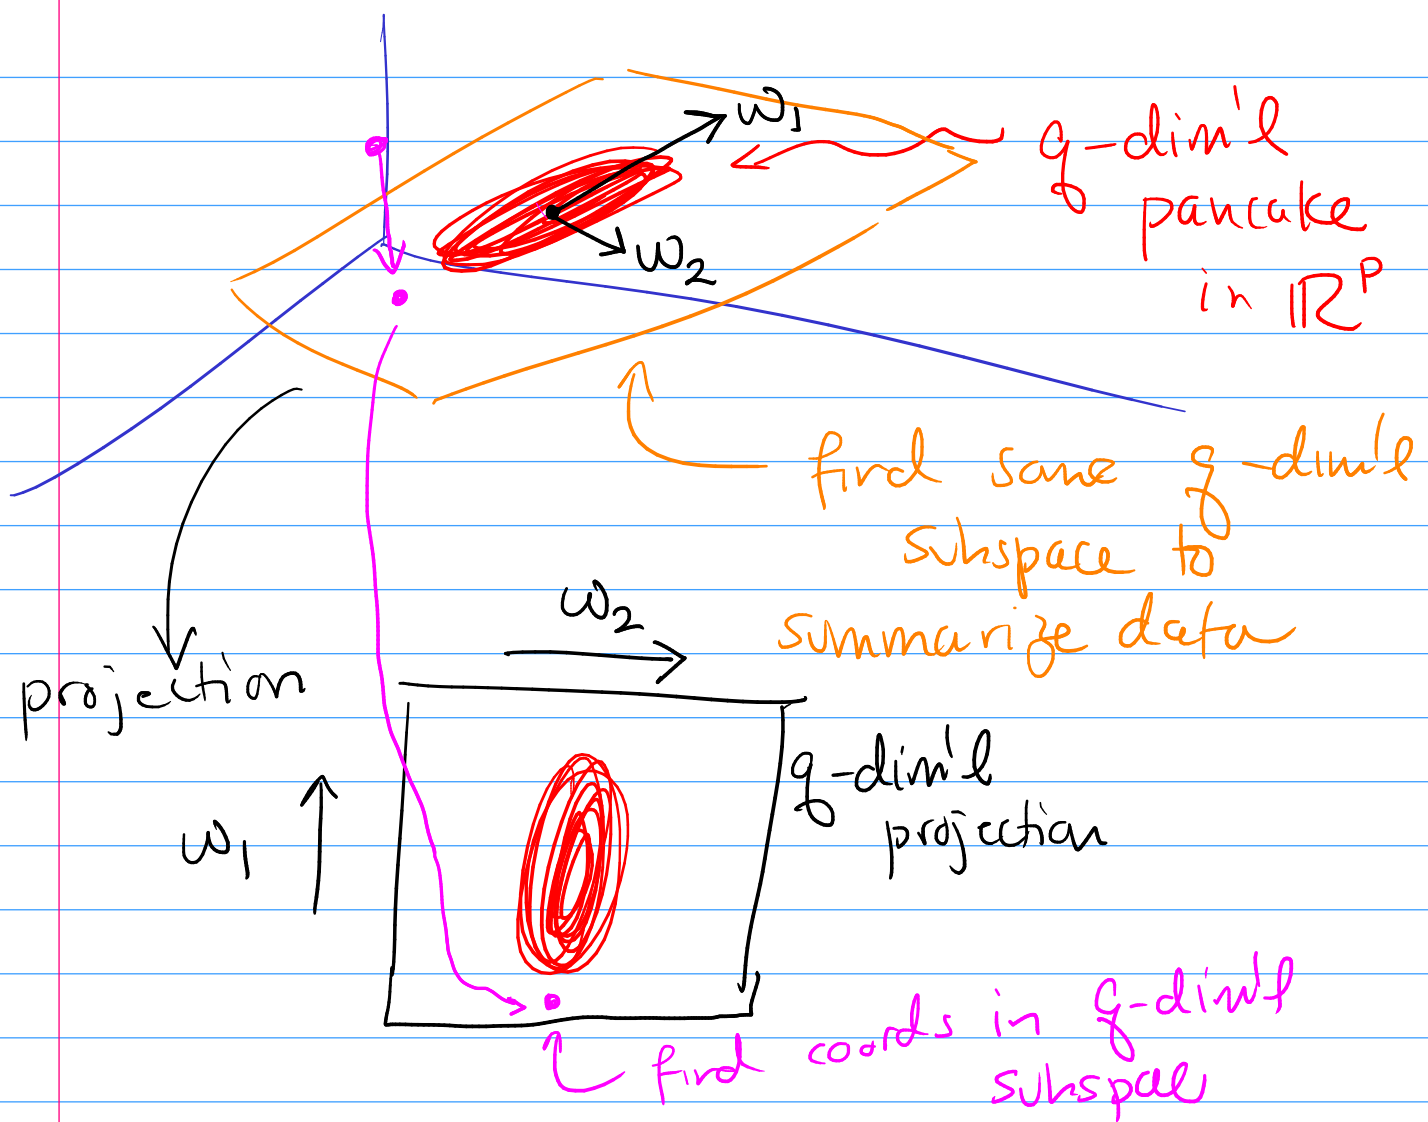 w1
q-dim'l
pancake
in ℝ^p
w2
find some q-dim'l
subspace to
summarize data
w2
projection
q-dim'l
projection
w1
find coords in q-dim'l
subspace